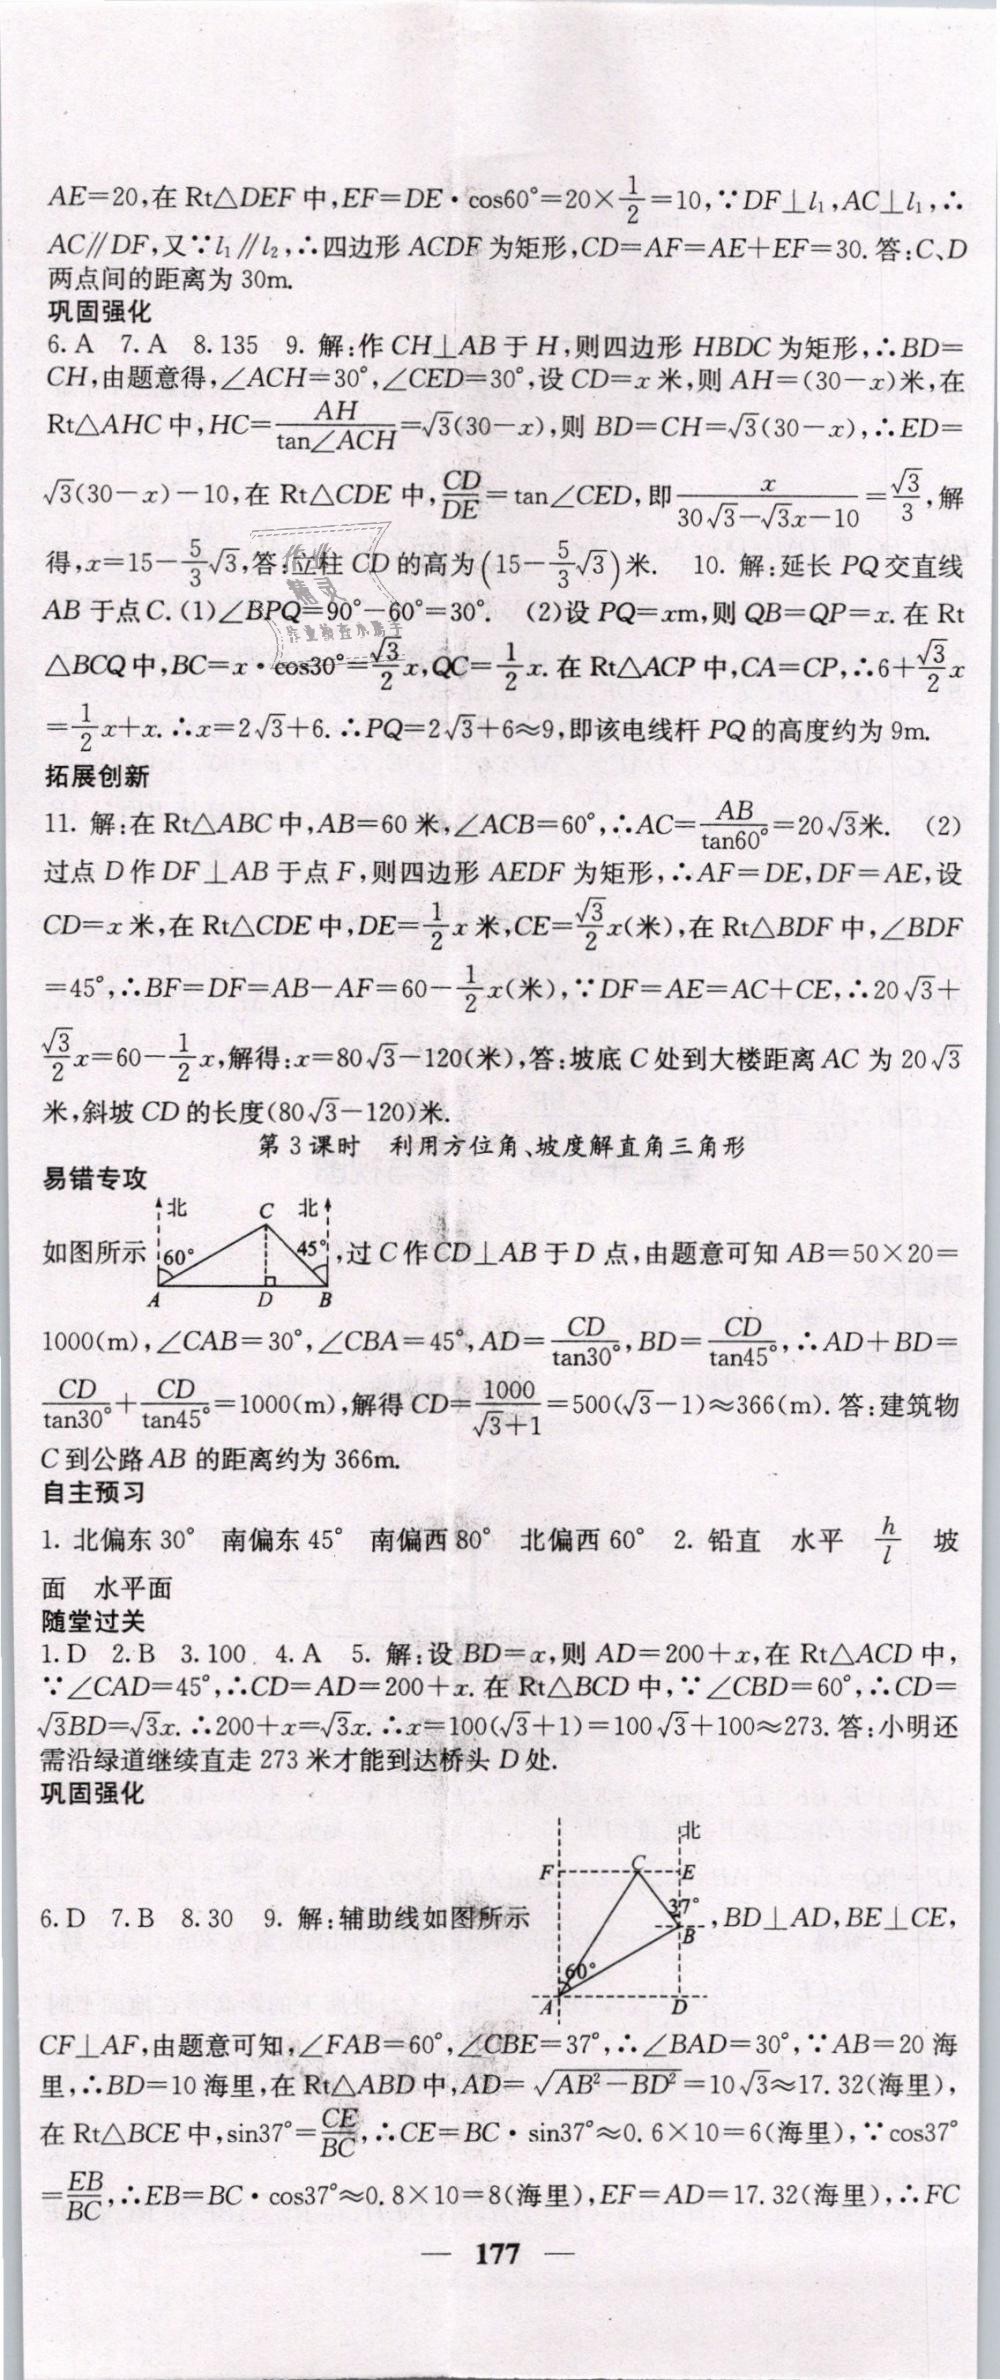 AE=20,在 Rt△DEF 中,EF=DE·cos60°=20×1/2=10,∵DF⊥l₁,AC⊥l₁,∴
AC∥DF,又∵l₁∥l₂,∴四边形 ACDF 为矩形,CD=AF=AE+EF=30. 答:C、D
两点间的距离为 30m.
巩固强化
6. A 7. A 8. 135 9. 解:作 CH⊥AB 于 H,则四边形 HBDC 为矩形,∴BD=
CH,由题意得,∠ACH=30°,∠CED=30°,设 CD=x 米,则 AH=(30-x)米,在
Rt△AHC 中,HC=AH/tan∠ACH=√3(30-x),则 BD=CH=√3(30-x),∴ED=
√3(30-x)-10,在 Rt△CDE 中,CD/DE=tan∠CED,即 x/(30√3-√3x-10)=√3/3,解
得,x=15-5/3√3,答:立柱 CD 的高为(15-5/3√3)米. 10. 解:延长 PQ 交直线
AB 于点 C. (1)∠BPQ=90°-60°=30°. (2)设 PQ=xm,则 QB=QP=x. 在 Rt
△BCQ 中,BC=x·cos30°=√3/2x,QC=1/2x. 在 Rt△ACP 中,CA=CP,∴6+√3/2x
=1/2x+x. ∴x=2√3+6. ∴PQ=2√3+6≈9,即该电线杆 PQ 的高度约为 9m.
拓展创新
11. 解:在 Rt△ABC 中,AB=60 米,∠ACB=60°,∴AC=AB/tan60°=20√3米. (2)
过点 D 作 DF⊥AB 于点 F,则四边形 AEDF 为矩形,∴AF=DE,DF=AE,设
CD=x 米,在 Rt△CDE 中,DE=1/2x 米,CE=√3/2x(米),在 Rt△BDF 中,∠BDF
=45°,∴BF=DF=AB-AF=60-1/2x(米),∵DF=AE=AC+CE,∴20√3+
√3/2x=60-1/2x,解得:x=80√3-120(米),答:坡底 C 处到大楼距离 AC 为 20√3
米,斜坡 CD 的长度(80√3-120)米.
第 3 课时 利用方位角、坡度解直角三角形
易错专攻
北 C 北
如图所示 60° 45° ,过 C 作 CD⊥AB 于 D 点,由题意可知 AB=50×20=
A D B
1000(m),∠CAB=30°,∠CBA=45°,AD=CD/tan30°,BD=CD/tan45°,∴AD+BD=
CD/tan30°+CD/tan45°=1000(m),解得 CD=1000/(√3+1)=500(√3-1)≈366(m). 答:建筑物
C 到公路 AB 的距离约为 366m.
自主预习
1. 北偏东 30° 南偏东 45° 南偏西 80° 北偏西 60° 2. 铅直 水平 h/l 坡
面 水平面
随堂过关
1. D 2. B 3. 100 4. A 5. 解:设 BD=x,则 AD=200+x,在 Rt△ACD 中,
∵∠CAD=45°,∴CD=AD=200+x. 在 Rt△BCD 中,∵∠CBD=60°,∴CD=
√3BD=√3x. ∴200+x=√3x. ∴x=100(√3+1)=100√3+100≈273. 答:小明还
需沿绿道继续直走 273 米才能到达桥头 D 处.
巩固强化
北
F C E
37°
6. D 7. B 8. 30 9. 解:辅助线如图所示 B ,BD⊥AD,BE⊥CE,
60°
A D
CF⊥AF,由题意可知,∠FAB=60°,∠CBE=37°,∴∠BAD=30°,∵AB=20 海
里,∴BD=10 海里,在 Rt△ABD 中,AD=√(AB²-BD²)=10√3≈17. 32(海里),
在 Rt△BCE 中,sin37°=CE/BC,∴CE=BC·sin37°≈0. 6×10=6(海里),∵cos37°
=EB/BC,∴EB=BC·cos37°≈0. 8×10=8(海里),EF=AD=17. 32(海里),∴FC
— 177 —
作业精灵
作业检查小助手